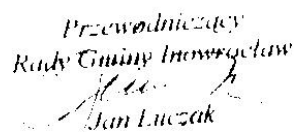 Przewodniczący
Rady Gminy Inowrocław
Jan Łuczak